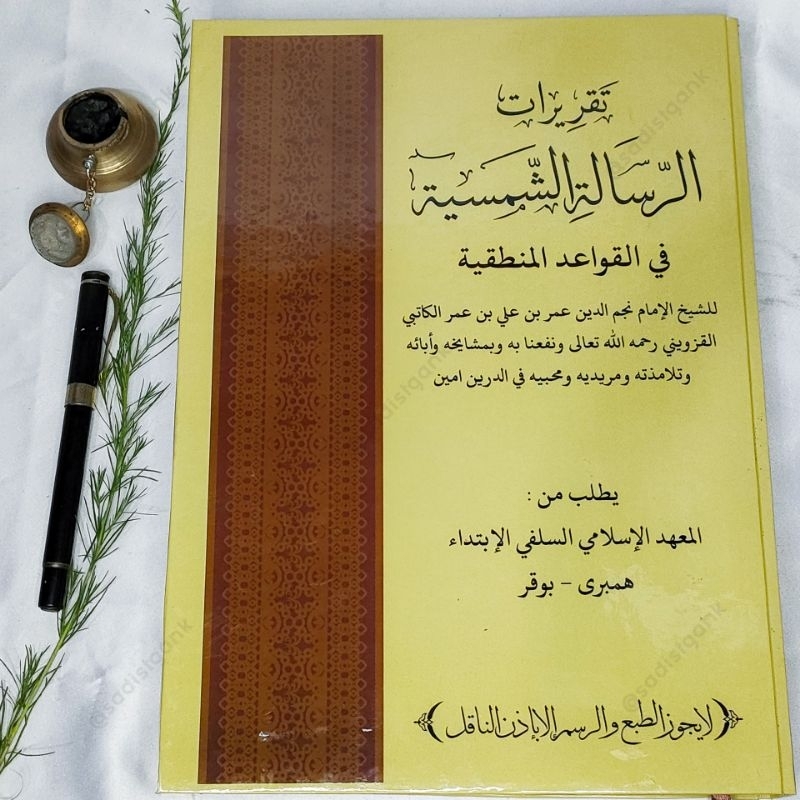 تقريرات
الرّسالة الشّمسية
في القواعد المنطقية
للشيخ الإمام نجم الدين عمر بن علي بن عمر الكاتبي
القزويني رحمه الله تعالى ونفعنا به وبمشايخه وأبائه
وتلامذته ومريديه ومحبيه في الدرين امين
يطلب من :
المعهد الإسلامي السلفي الإبتداء
همبرى - بوقر
﴿لايجوز الطبع والرسم إلا بإذن الناقل﴾
@sadisiqank